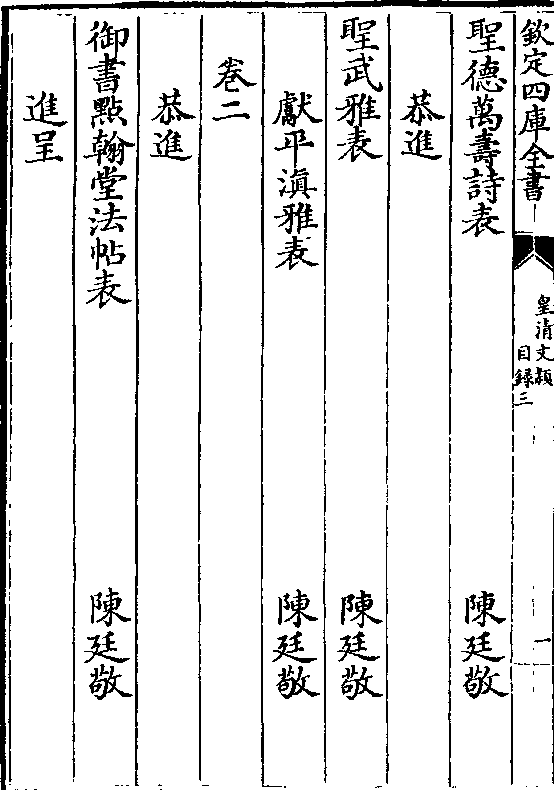 欽定四庫全書
皇清文穎
目録三
一
聖德萬壽詩表 陳廷敬
恭進
聖武雅表 陳廷敬
獻平滇雅表 陳廷敬
卷二
恭進
御書點翰堂法帖表 陳廷敬
進呈